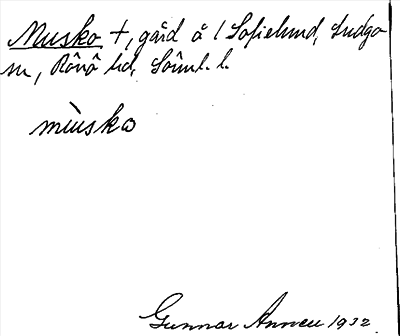 Musko +, gård å / Sofielund, Ludgo
sn, Rönö hd, Söml. l.
mùsko
Gunnar Anneu 1932